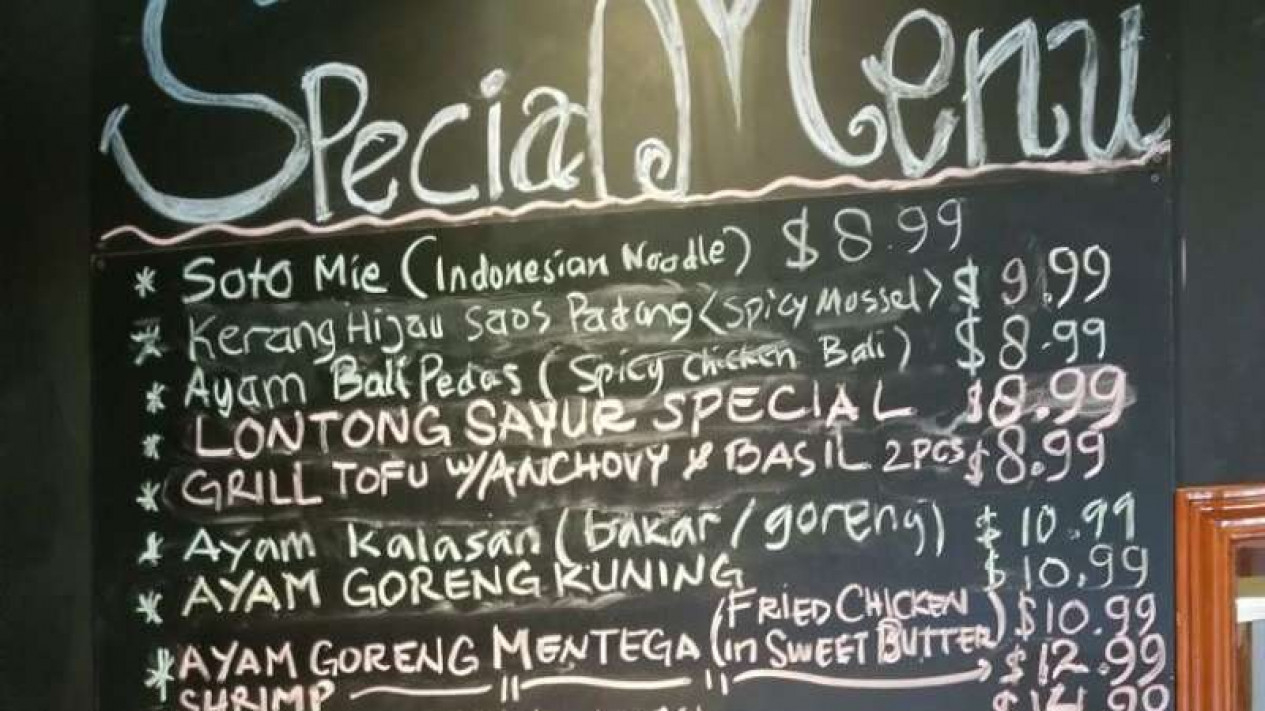 Special Menu
* Soto Mie (Indonesian Noodle) $8.99
* Kerang Hijau Saos Padang <Spicy Mussel> $9.99
* Ayam Bali Pedas (Spicy Chicken Bali) $8.99
* LONTONG SAYUR SPECIAL $8.99
* GRILL TOFU W/ANCHOVY & BASIL 2PCS $8.99
* Ayam Kalasan (bakar/goreng) $10.99
* AYAM GORENG KUNING $10.99
* AYAM GORENG MENTEGA (FRIED CHICKEN in SWEET BUTTER) $10.99
SHRIMP — " — " — $12.99
$14.99